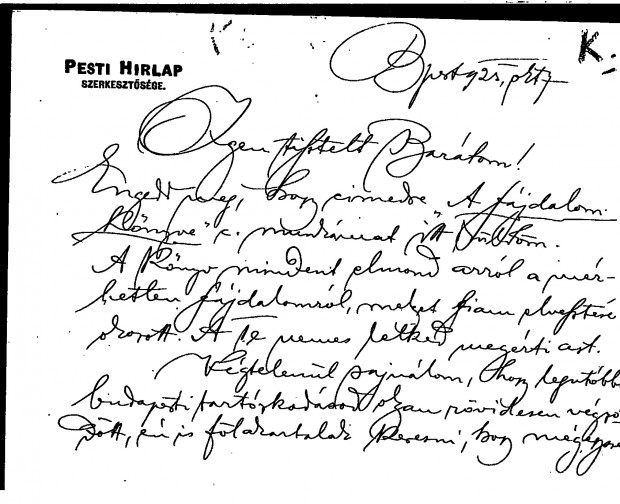 K.
PESTI HIRLAP
SZERKESZTŐSÉGE.
Bpest 925, okt 7
Igen tisztelt Barátom!
Engedd meg, hogy cimedre "A fájdalom
Könyve" c. munkámat küldöm.
A Könyv mindent elmond arról a mér-
hetlen fájdalomról, melyet fiam elvesztése
okozott. A Te nemes lelked megérti azt.
Végtelenül sajnálom, hogy legutóbbi
budapesti tartózkodásod olyan rövidesen végző-
dött, én is föl akartalak keresni, hogy mégegyszer